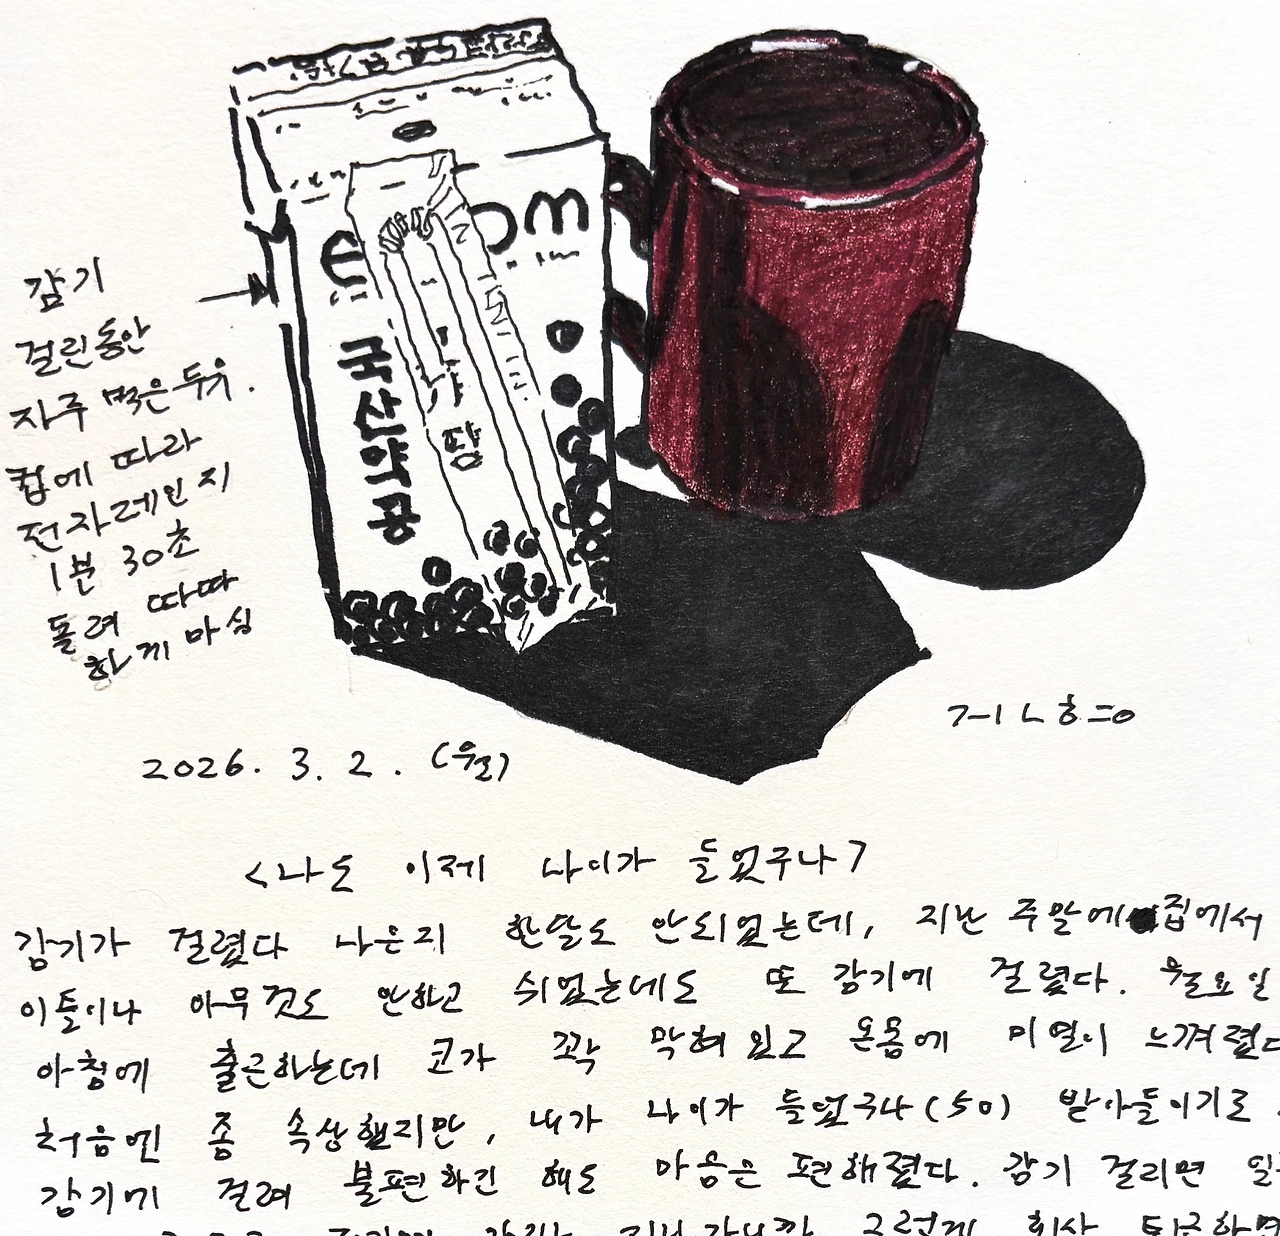 국산약콩
감기
걸린동안
자주 먹은 두유.
컵에 따라
전자레인지
1분 30초
돌려 따따
하게 마심
2026. 3. 2. (월)
<나도 이제 나이가 들었구나>
감기가 걸렸다 나은지 한달도 안되었는데, 지난 주말에 집에서
이틀이나 아무것도 안하고 쉬었는데도 또 감기에 걸렸다. 월요일
아침에 출근하는데 코가 꽉 막혀 있고 온몸에 미열이 느껴졌다
처음엔 좀 속상했지만, 내가 나이가 들었구나(50) 받아들이기로
감기에 걸려 불편하긴 해도 마음은 편해졌다. 감기 걸리면
그렇게 회사 퇴근하면